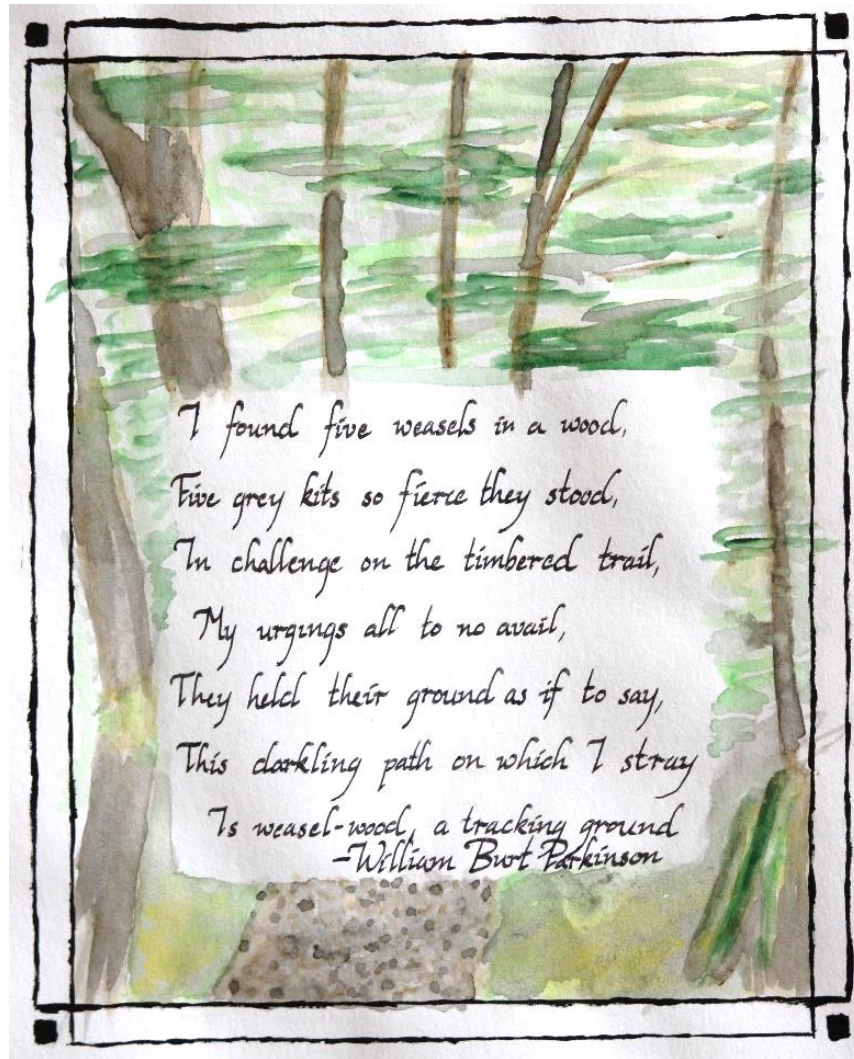 I found five weasels in a wood,
Five grey kits so fierce they stood,
In challenge on the timbered trail,
My urgings all to no avail,
They held their ground as if to say,
This darkling path on which I stray
Is weasel-wood, a tracking ground
-William Burt Parkinson